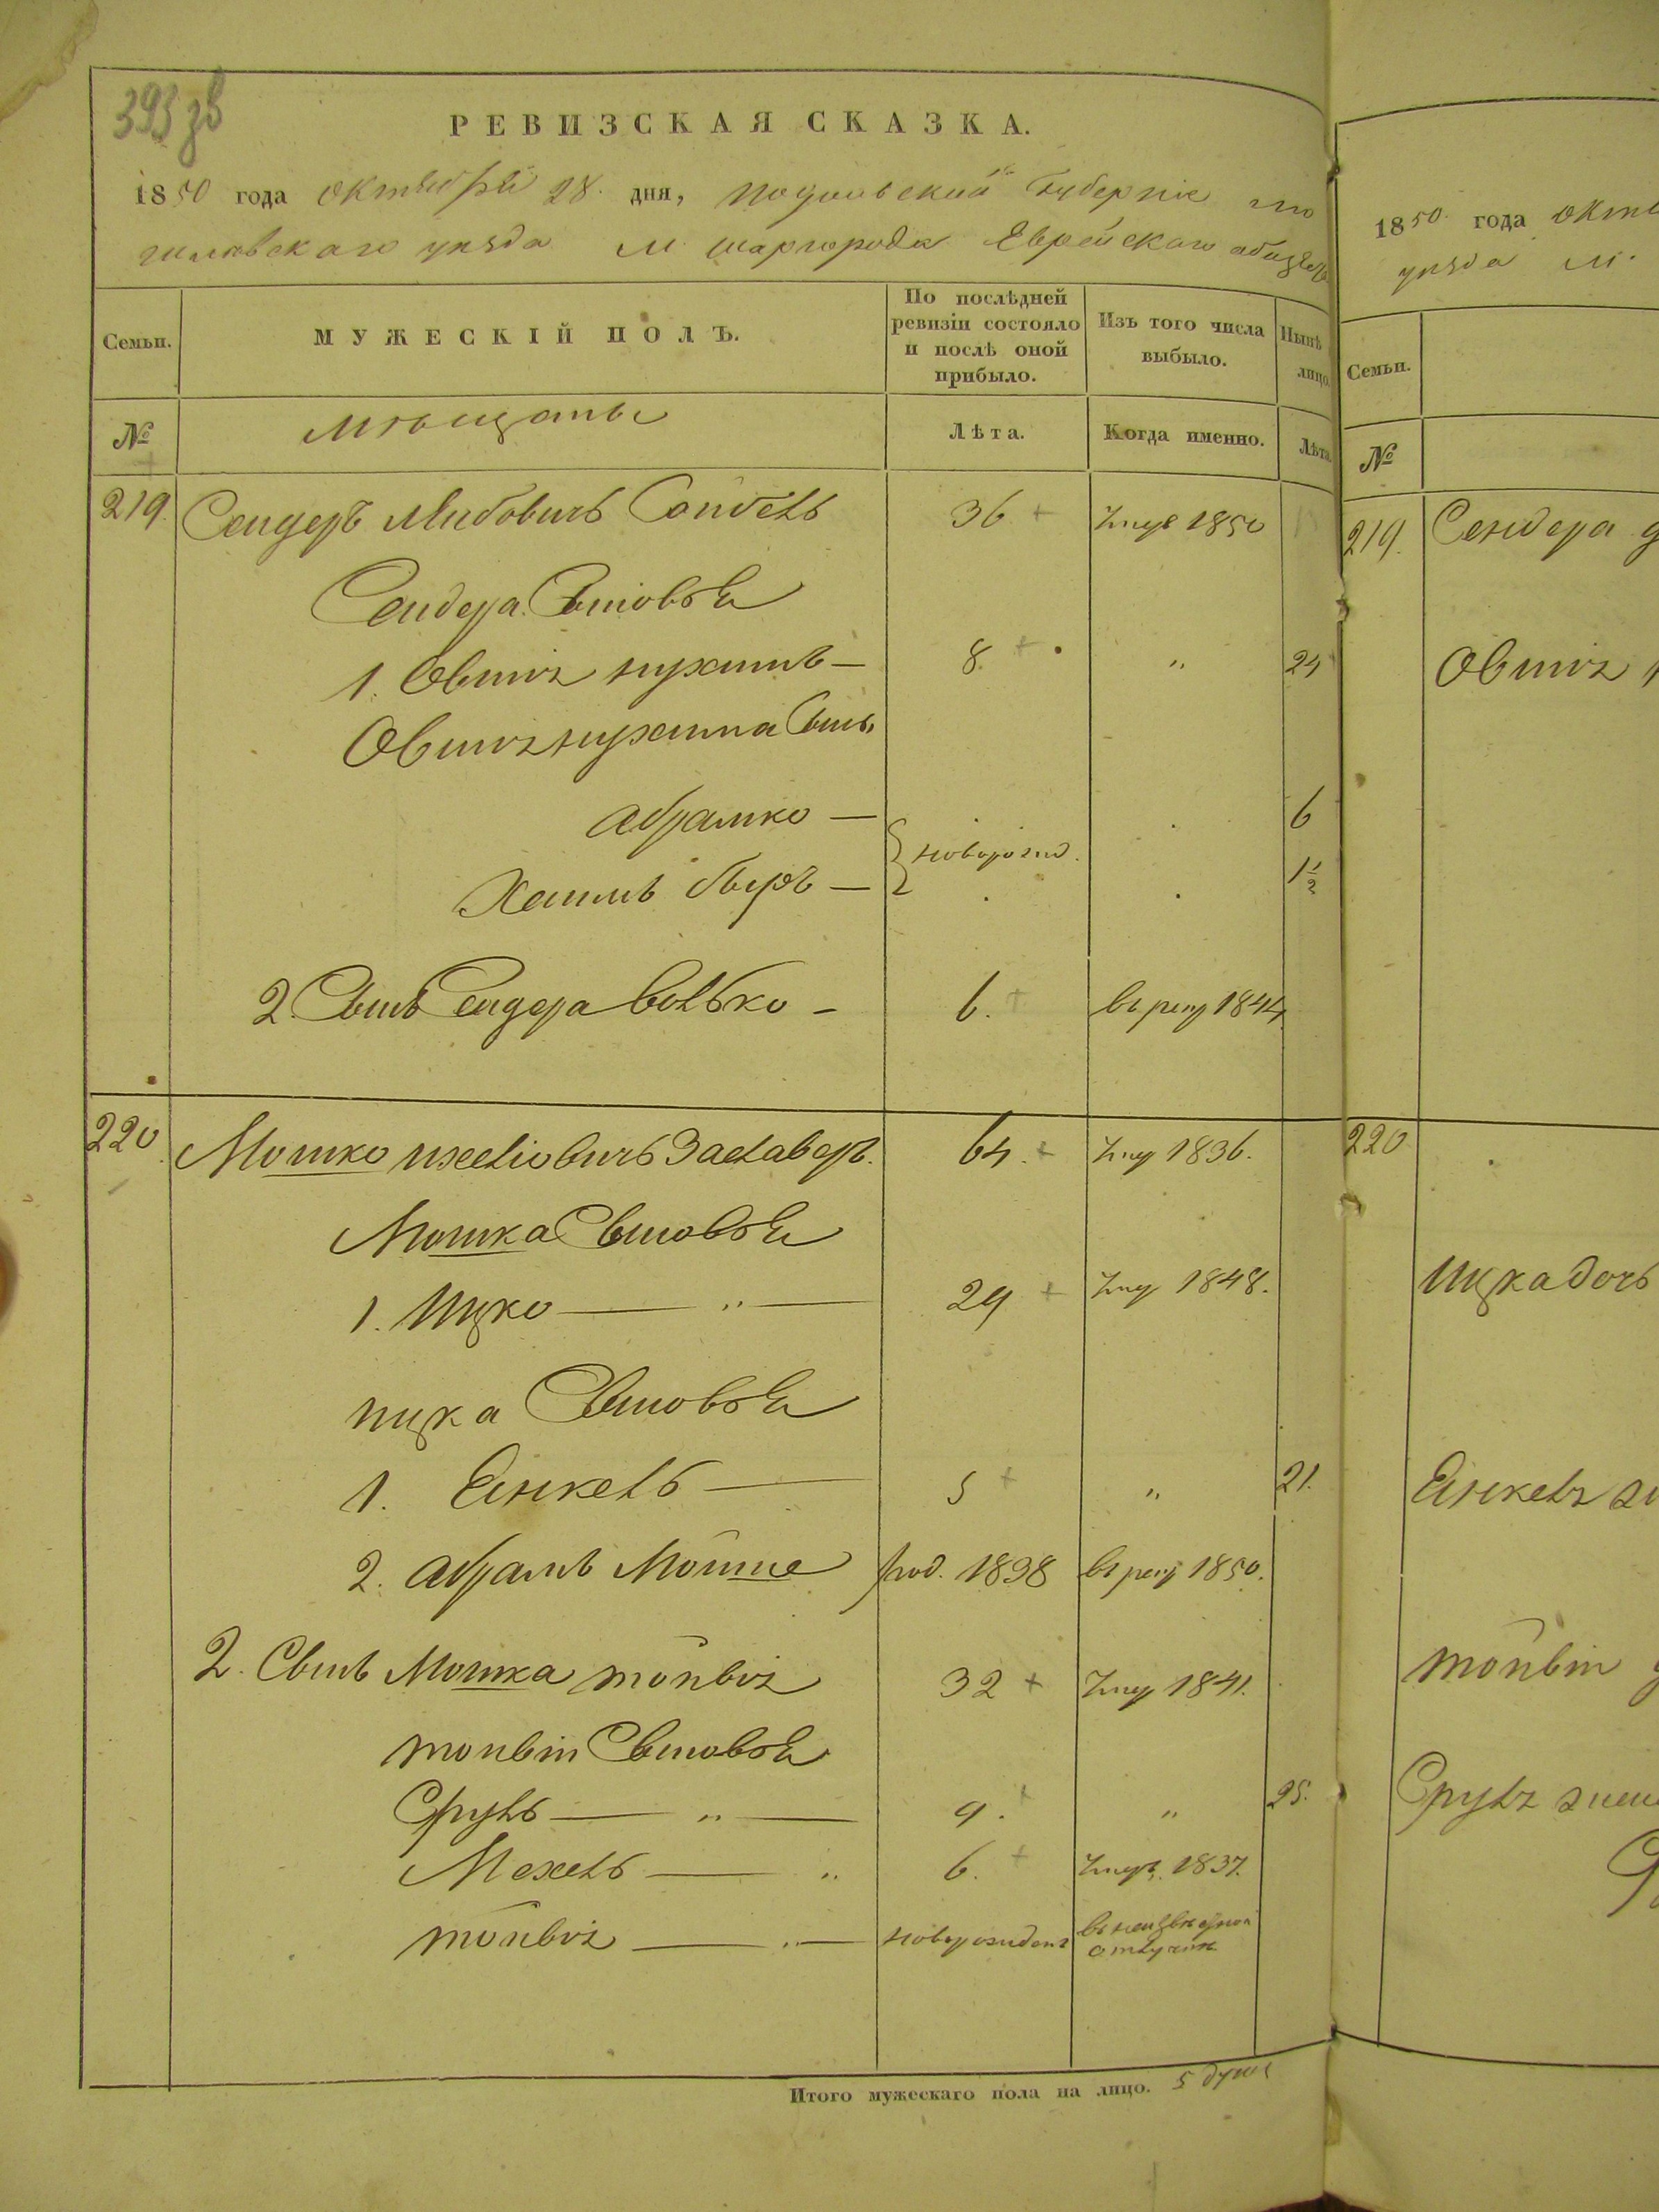 393 зв
РЕВИЗСКАЯ СКАЗКА.
1850 года октября 28. дня, Подольской Губерніи мо
гилевского уезда м шаргорода Еврейскаго обществ
Семьи.
МУЖЕСКІЙ ПОЛЪ.
По послѣдней ревизіи состояло и послѣ оной прибыло.
Изъ того числа выбыло.
Нынѣ лицо.
№
мещаны
Лѣта.
Когда именно.
Лѣта.
219. Сендеръ Сойбель 36 умре 1850
Сендера Сыновья
1. Овшія нухимъ — 8. " 24
Овшія нухима Сынъ
абрамко — 6
новорожд.
Хаимъ беръ — 1½
2. Сынъ Сендера Волько - 6. въ рекр 1844
220. Мошко иселіовичъ Заславеръ. 64. умер 1836.
Мошка Сыновья
1. Ицко — " — 29 умер 1848.
ицка Сыновья
1. Янкель — 5 " 21.
2. абрамъ Мойше род. 1838 въ рекр 1850.
2. Сынъ Мошка тойвія 32 умер 1841.
тойвіи Сыновья
Сруль — " — 9. " 25.
Мехель — " 6. умеръ 1837.
тойвія — " — новорожденъ въ неизвестной отлучке
Итого мужескаго пола на лицо. 5 душъ
1850 года окт
уезда м.
Семьи.
№
219. Сендера
Овшія
220
Ицка дочь
Янкеля
тойвіи
Сруля